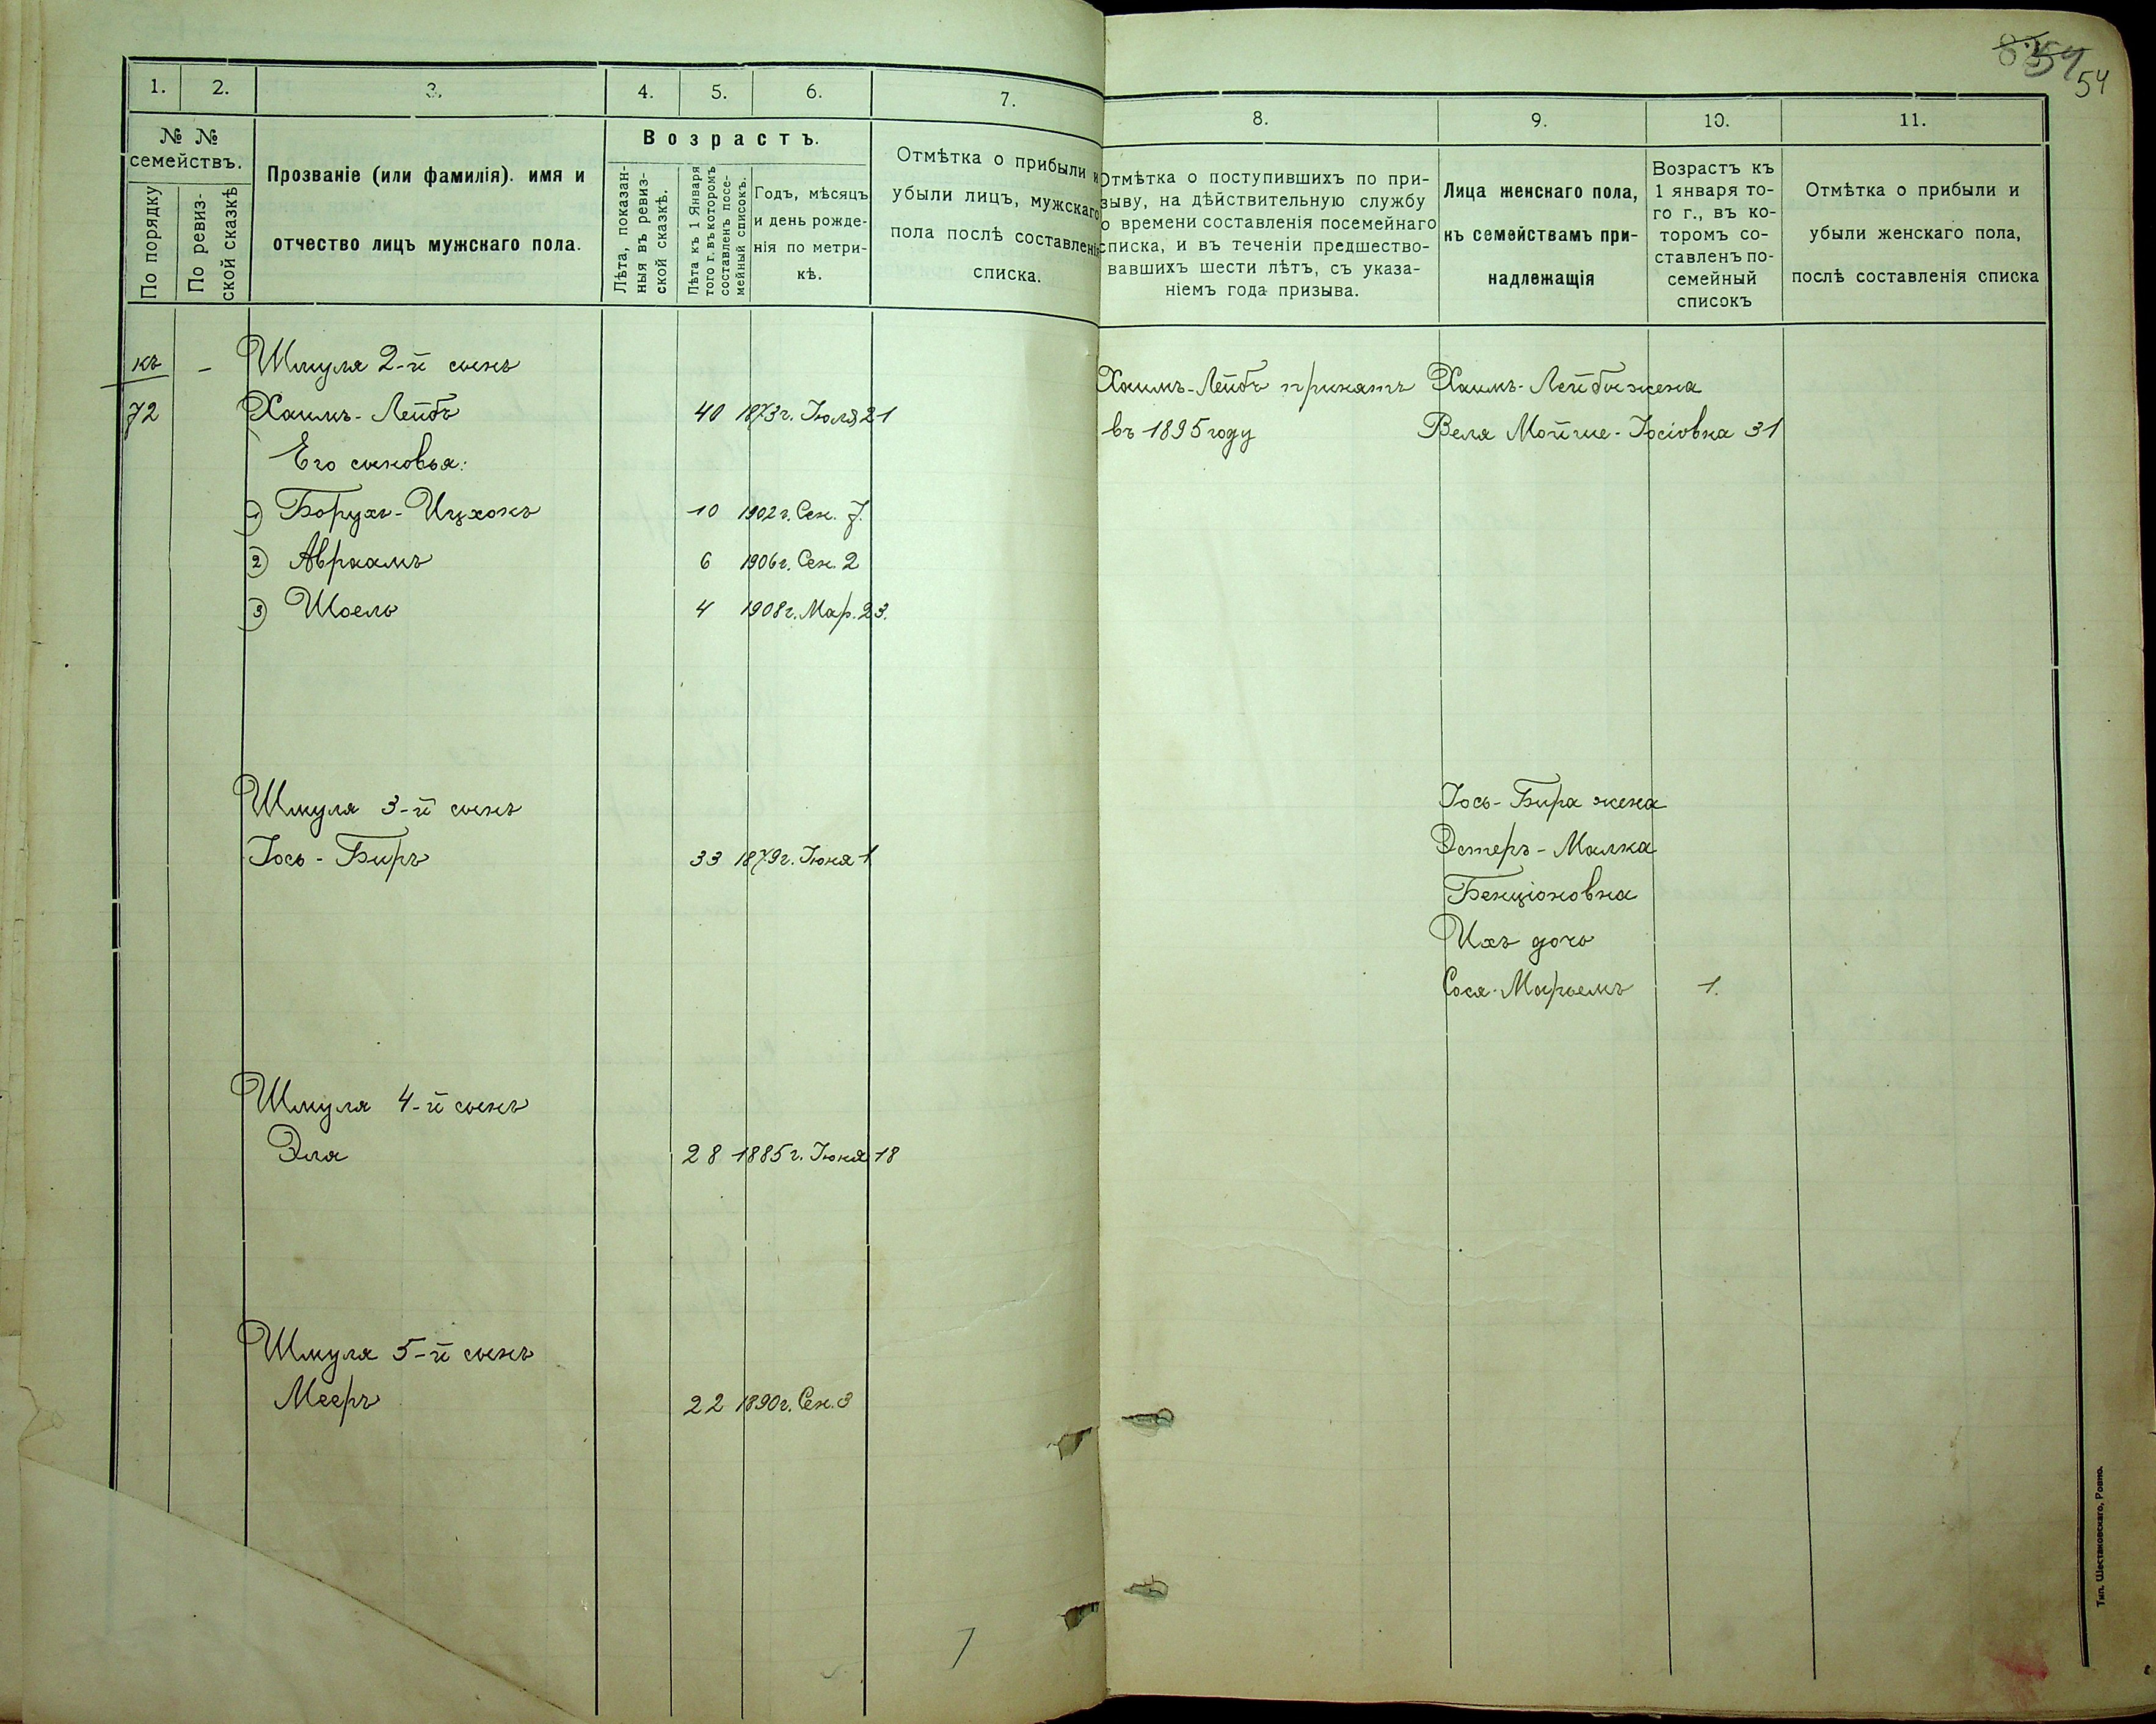 54
54
1. 2. 3. 4. 5. 6. 7. 8. 9. 10. 11.
№ №
семействъ.
По порядку
По ревиз-
ской сказкѣ
Прозваніе (или фамилія). имя и
отчество лицъ мужскаго пола.
Возрастъ.
Лѣта, показан-
ныя въ ревиз-
ской сказкѣ.
Лѣта къ 1 Января
того г. въ которомъ
составленъ посе-
мейный списокъ.
Годъ, мѣсяцъ
и день рожде-
нія по метри-
кѣ.
Отмѣтка о прибыли и
убыли лицъ, мужскаго
пола послѣ составленія
списка.
Отмѣтка о поступившихъ по при-
зыву, на дѣйствительную службу
о времени составленія посемейнаго
списка, и въ теченіи предшество-
вавшихъ шести лѣтъ, съ указа-
ніемъ года призыва.
Лица женскаго пола,
къ семействамъ при-
надлежащія
Возрастъ къ
1 января то-
го г., въ ко-
торомъ со-
ставленъ по-
семейный
списокъ
Отмѣтка о прибыли и
убыли женскаго пола,
послѣ составленія списка
къ - Шмуля 2-й сынъ Хаимъ-Лейбъ принятъ Хаимъ-Лейбы жена
72 Хаимъ-Лейбъ 40 1873г. Іюля 21 въ 1895 году Веля Мойше-Іосіовна 31
Его сыновья:
1) Борухъ-Ицхокъ 10 1902г. Сен. 7.
2) Авраамъ 6 1906г. Сен. 2
3) Шоель 4 1908г. Мар. 23.
Шмуля 3-й сынъ Іось-Бира жена
Іось-Биръ 33 1879г. Іюня 1 Эстеръ-Малка
Бенціоновна
Ихъ дочь
Сося-Марьемъ 1.
Шмуля 4-й сынъ
Эля 28 1885г. Іюня 18
Шмуля 5-й сынъ
Мееръ 22 1890г. Сен. 3
Тип. Шестаковскаго, Ровно.